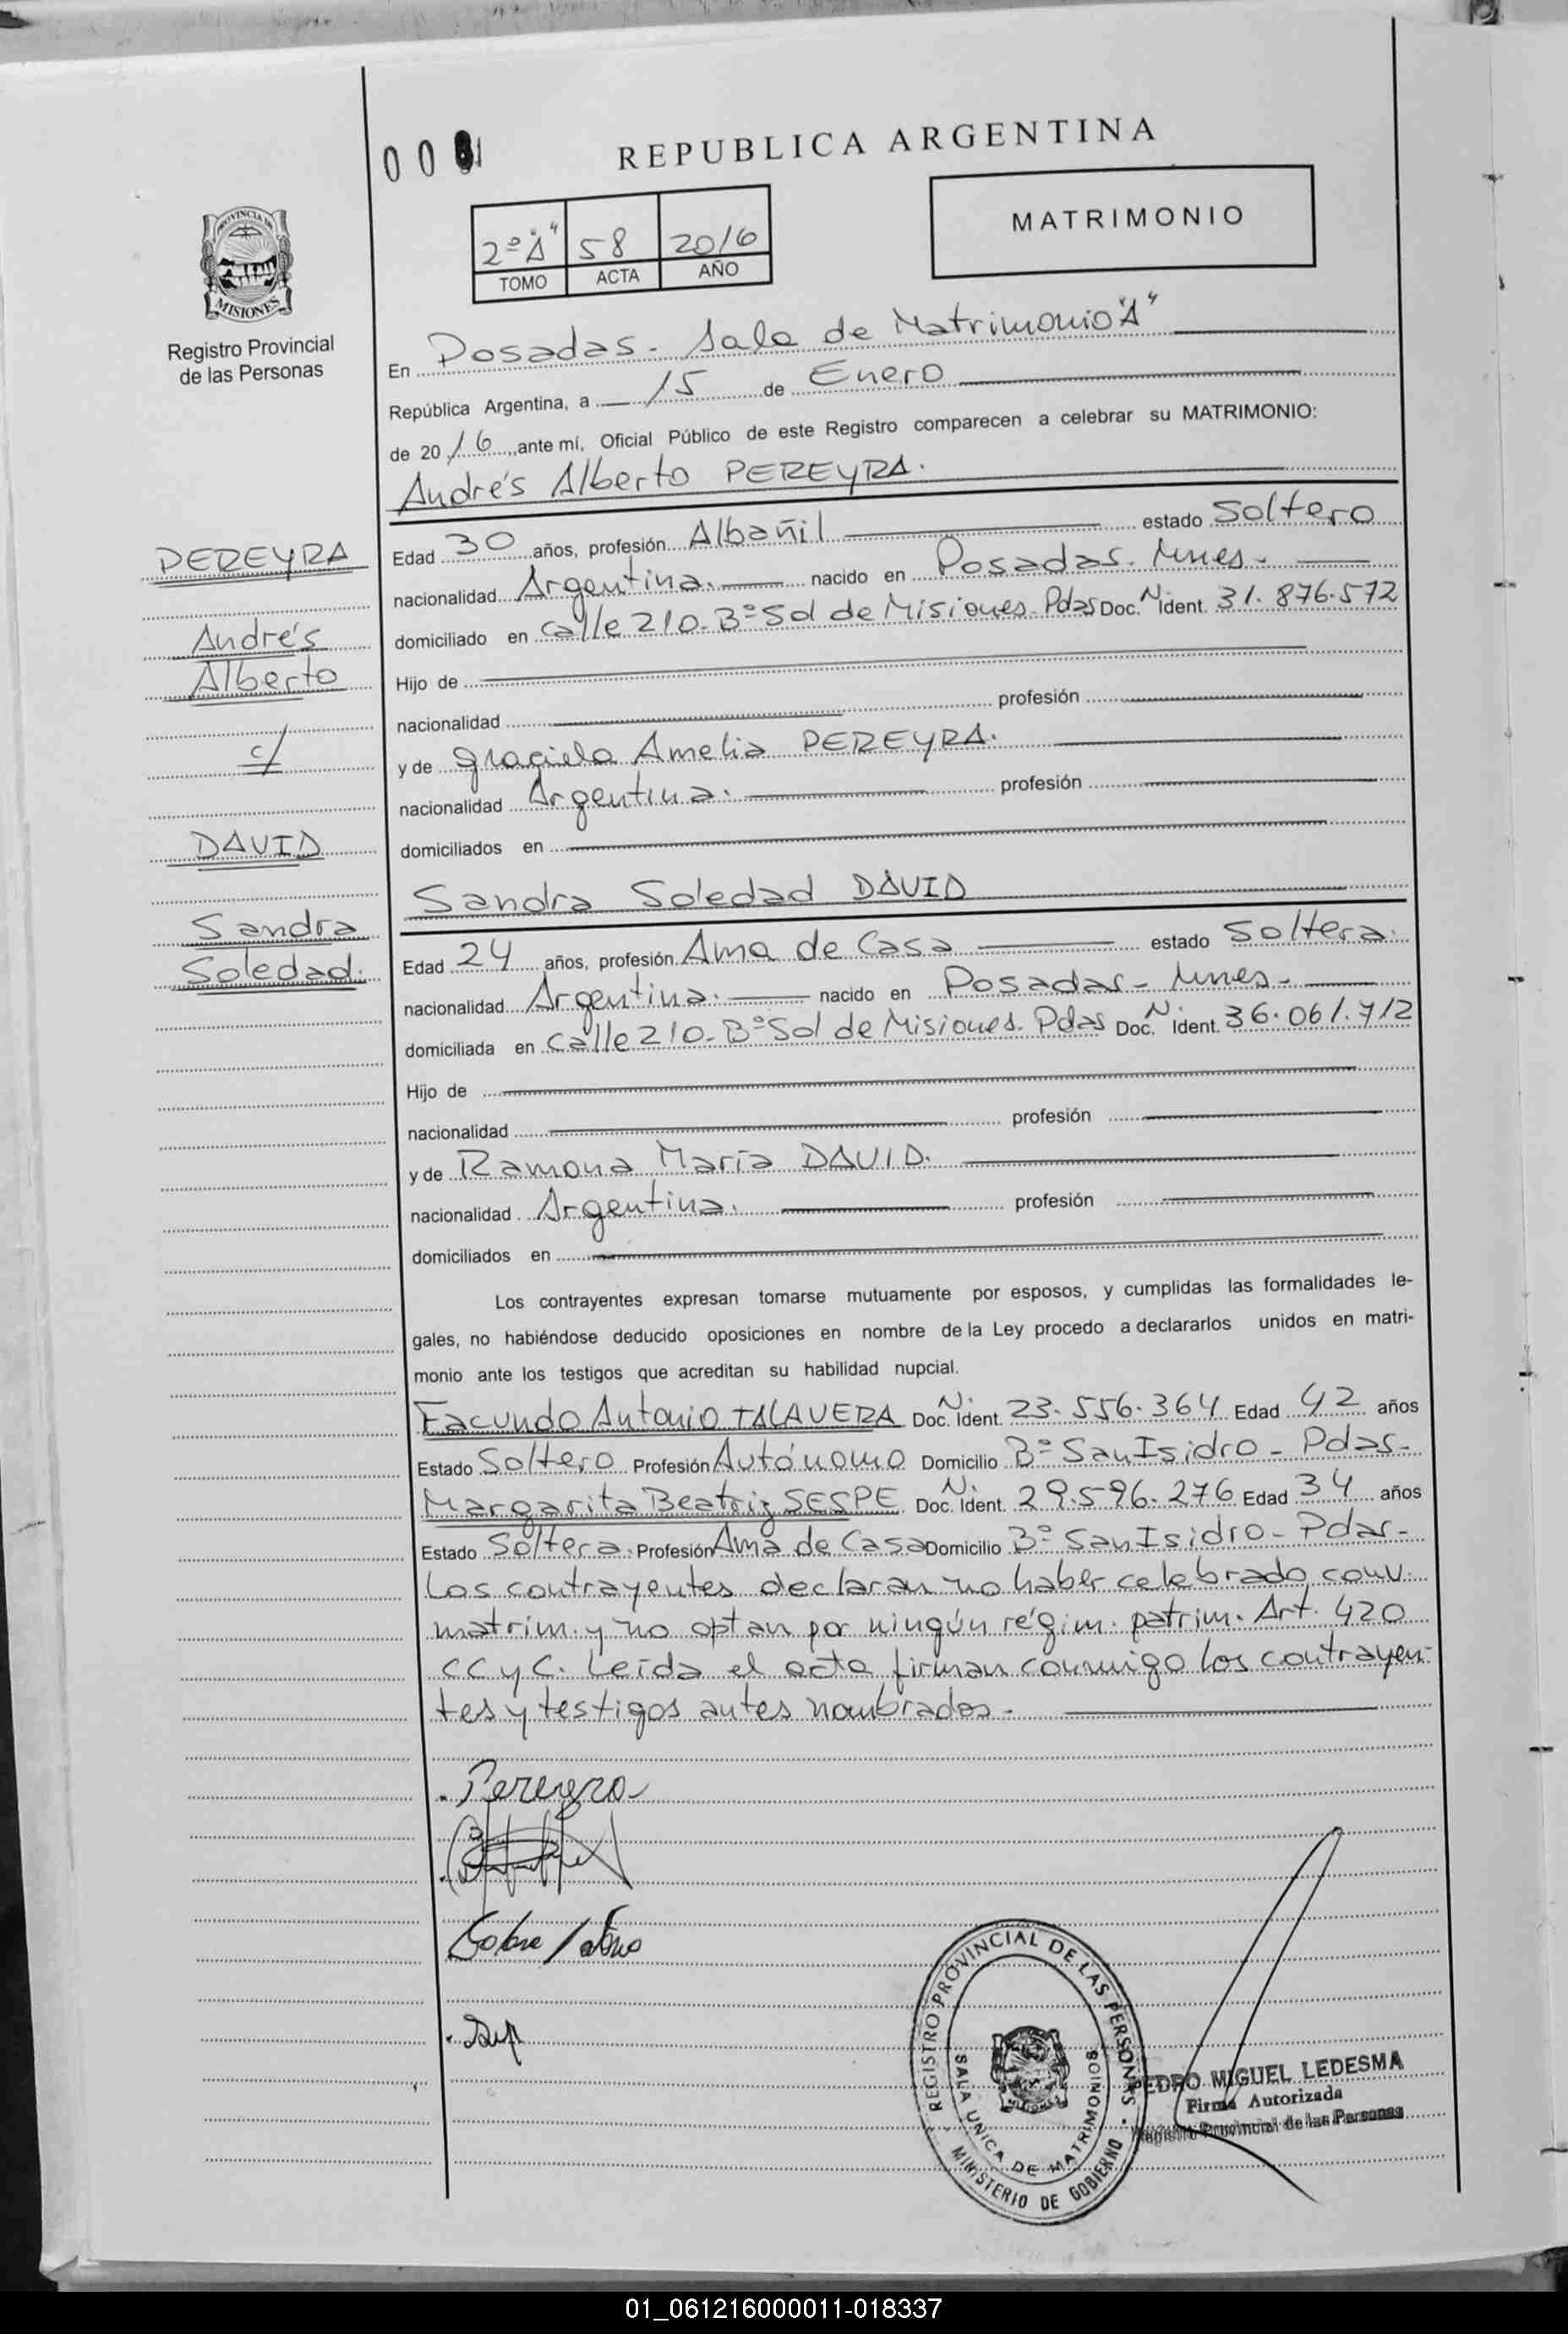 REPUBLICA ARGENTINA
PROVINCIA DE
MISIONES
Registro Provincial
de las Personas
2º "A" 58 2016
TOMO ACTA AÑO
MATRIMONIO
En Posadas - Sala de Matrimonio "A"
República Argentina, a 15 de Enero
de 2016, ante mí, Oficial Público de este Registro comparecen a celebrar su MATRIMONIO:
Andrés Alberto PEREYRA.
Edad 30 años, profesión Albañil estado Soltero
nacionalidad Argentina. nacido en Posadas. Mnes.
domiciliado en calle 210. Bº Sol de Misiones. Pdas Doc. N Ident. 31.876.572
Hijo de
nacionalidad profesión
y de Graciela Amelia PEREYRA.
nacionalidad Argentina. profesión
domiciliados en
Sandra Soledad DAVID
Edad 24 años, profesión Ama de Casa estado Soltera.
nacionalidad Argentina. nacido en Posadas - Mnes.
domiciliada en calle 210. Bº Sol de Misiones. Pdas Doc. N. Ident. 36.061.712
Hijo de
nacionalidad profesión
y de Ramona María DAVID.
nacionalidad Argentina. profesión
domiciliados en
PEREYRA
Andrés
Alberto
c/
DAVID
Sandra
Soledad.
Los contrayentes expresan tomarse mutuamente por esposos, y cumplidas las formalidades le-
gales, no habiéndose deducido oposiciones en nombre de la Ley procedo a declararlos unidos en matri-
monio ante los testigos que acreditan su habilidad nupcial.
Facundo Antonio TALAVERA Doc. N. Ident. 23.556.364 Edad 42 años
Estado Soltero Profesión Autónomo Domicilio Bº San Isidro - Pdas-
Margarita Beatriz SESPE Doc. N. Ident. 29.596.276 Edad 34 años
Estado Soltera. Profesión Ama de Casa Domicilio Bº San Isidro - Pdas-
Los contrayentes declaran no haber celebrado conv.
matrim. y no optan por ningún régim. patrim. Art. 420
CC y C. Leída el acta firman conmigo los contrayen-
tes y testigos antes nombrados.
Pereyra
REGISTRO PROVINCIAL DE LAS PERSONAS
SALA UNICA DE MATRIMONIOS
MINISTERIO DE GOBIERNO
PEDRO MIGUEL LEDESMA
Firma Autorizada
Registro Provincial de las Personas
01_061216000011-018337